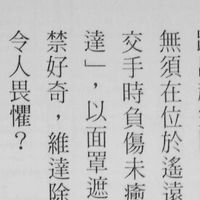 無須在位於遙遠
交手時負傷未癒
達」，以面罩遮
禁好奇，維達除
令人畏懼？